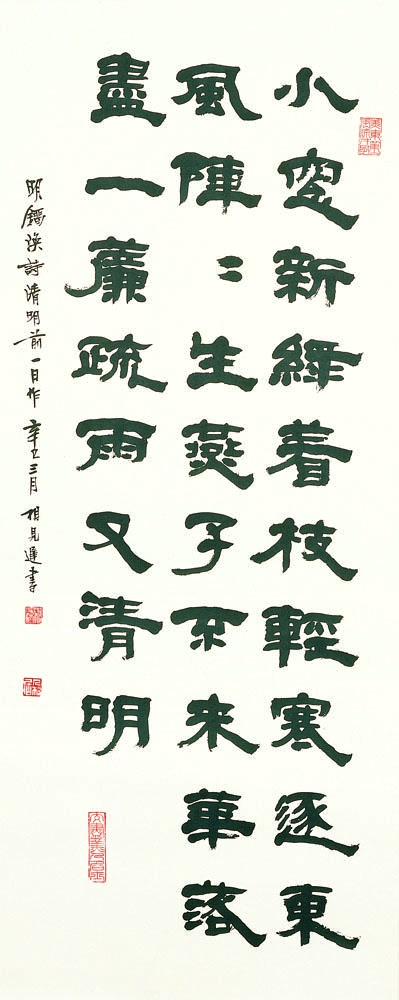 小窗新綠着枝輕寒逐東
風陣〻生燕子不來華落
盡一簾疏雨又清明
明鎦渙詩清明前一日作 辛丑三月 相見遲書